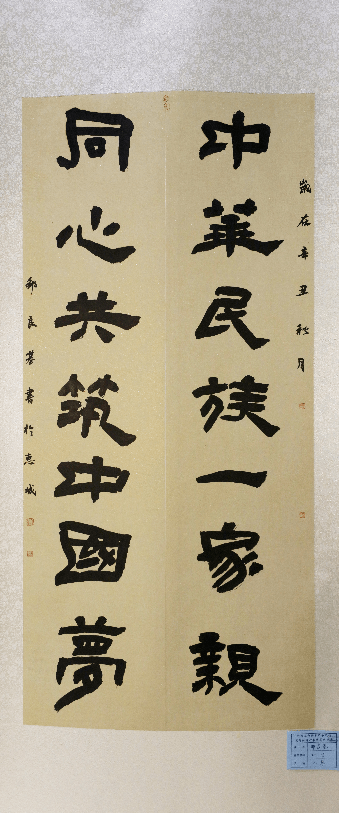 歲在辛丑秋月
中華民族一家親
同心共筑中國夢
良基書於惠城